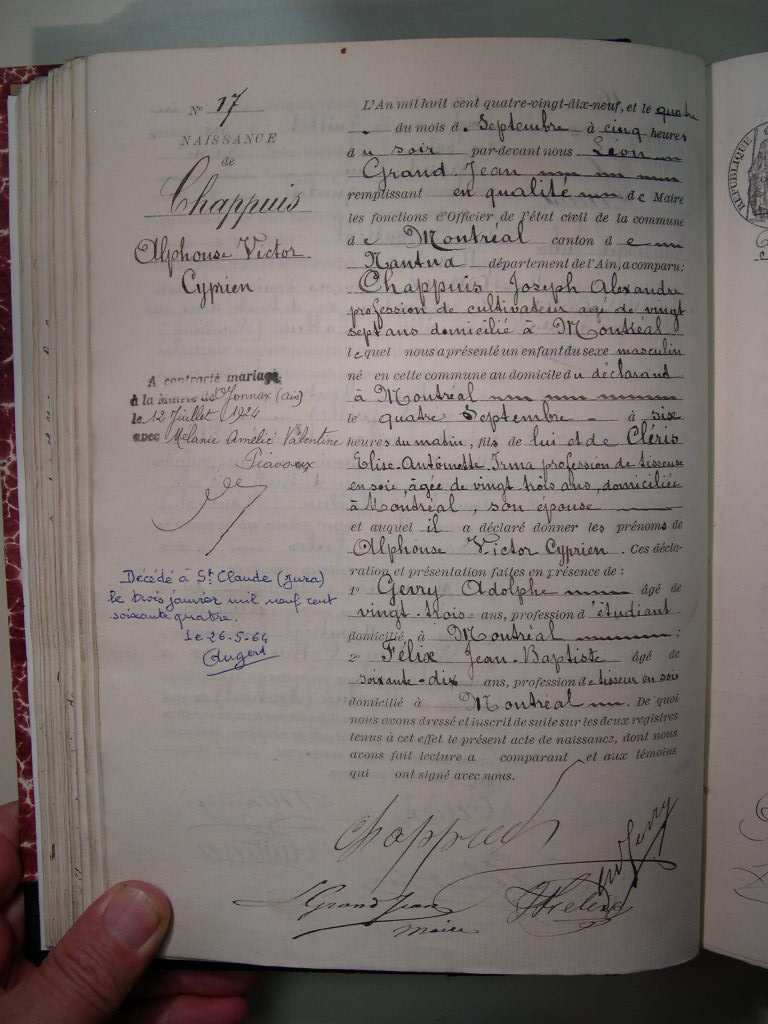 N° 17
NAISSANCE
de
Chappuis
Alphouse Victor
Cyprien
A contracté mariage
à la mairie de Oyonnax (Ain)
le 12 Juillet 1924
avec Mélanie Amélie Valentine
Décédé à St Claude (Jura)
le trois janvier mil neuf cent
soixante quatre.
Le 26-5-64
L'An mil huit cent quatre-vingt-dix-neuf, et le quatre
du mois de Septembre à cinq heures
du soir par-devant nous Léon
Grand-Jean
remplissant en qualité de Maire
les fonctions d'Officier de l'état civil de la commune
de Montréal canton de
Nantua département de l'Ain, a comparu:
Chappuis Joseph Alexandre
profession de cultivateur agé de vingt
sept ans domicilié à Montréal
lequel nous a présenté un enfant du sexe masculin
né en cette commune au domicile du déclarand
à Montréal
le quatre Septembre à six
heures du matin, fils de lui et de Cléris
Elise-Antoinette Irma profession de tisseuse
en soie, âgée de vingt trois ans, domiciliée
à Montréal, son épouse
et auquel il a déclaré donner les prénoms de
Alphouse Victor Cyprien. Ces décla-
ration et présentation faites en présence de :
1° Gerry Adolphe âgé de
vingt-trois ans, profession d'étudiant
domicilié à Montréal ;
2° Félix Jean-Baptiste âgé de
soixante-dix ans, profession de tisseur en soie
domicilié à Montréal. De quoi
nous avons dressé et inscrit de suite sur les deux registres
tenus à cet effet le présent acte de naissance, dont nous
avons fait lecture a comparant et aux témoins
qui ont signé avec nous.
Chappuis
L Grand Jean
Maire
RÉPUBLIQUE